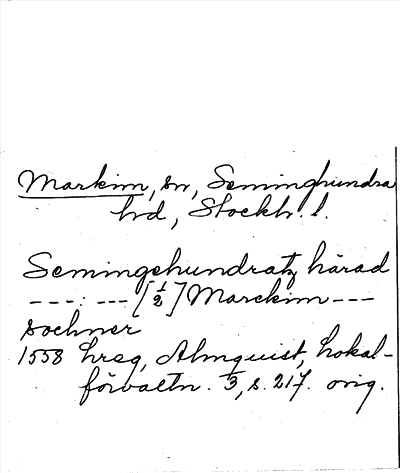 Markim, sn, Seminghundra
hd, Stockh. l.
Semingehundratz härad
---:---[½] Marckim ---
sochner
1558 hreg, Almquist, Lokal-
förvaltn. 3, s. 217. orig.